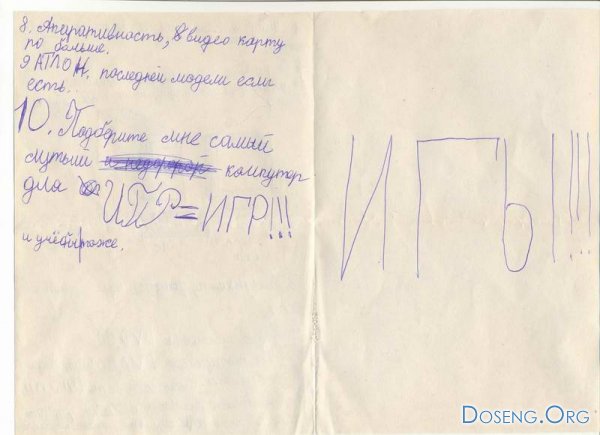 8. Аперативность, в видео карту
по больше.
9 АТЛОН. последней модели если
есть.
10. Подберите мне самый
лутьший компутор
для ИГР=ИГР!!!
и учёбы тоже.
ИГЬІ!!!
DOSENG.ORG